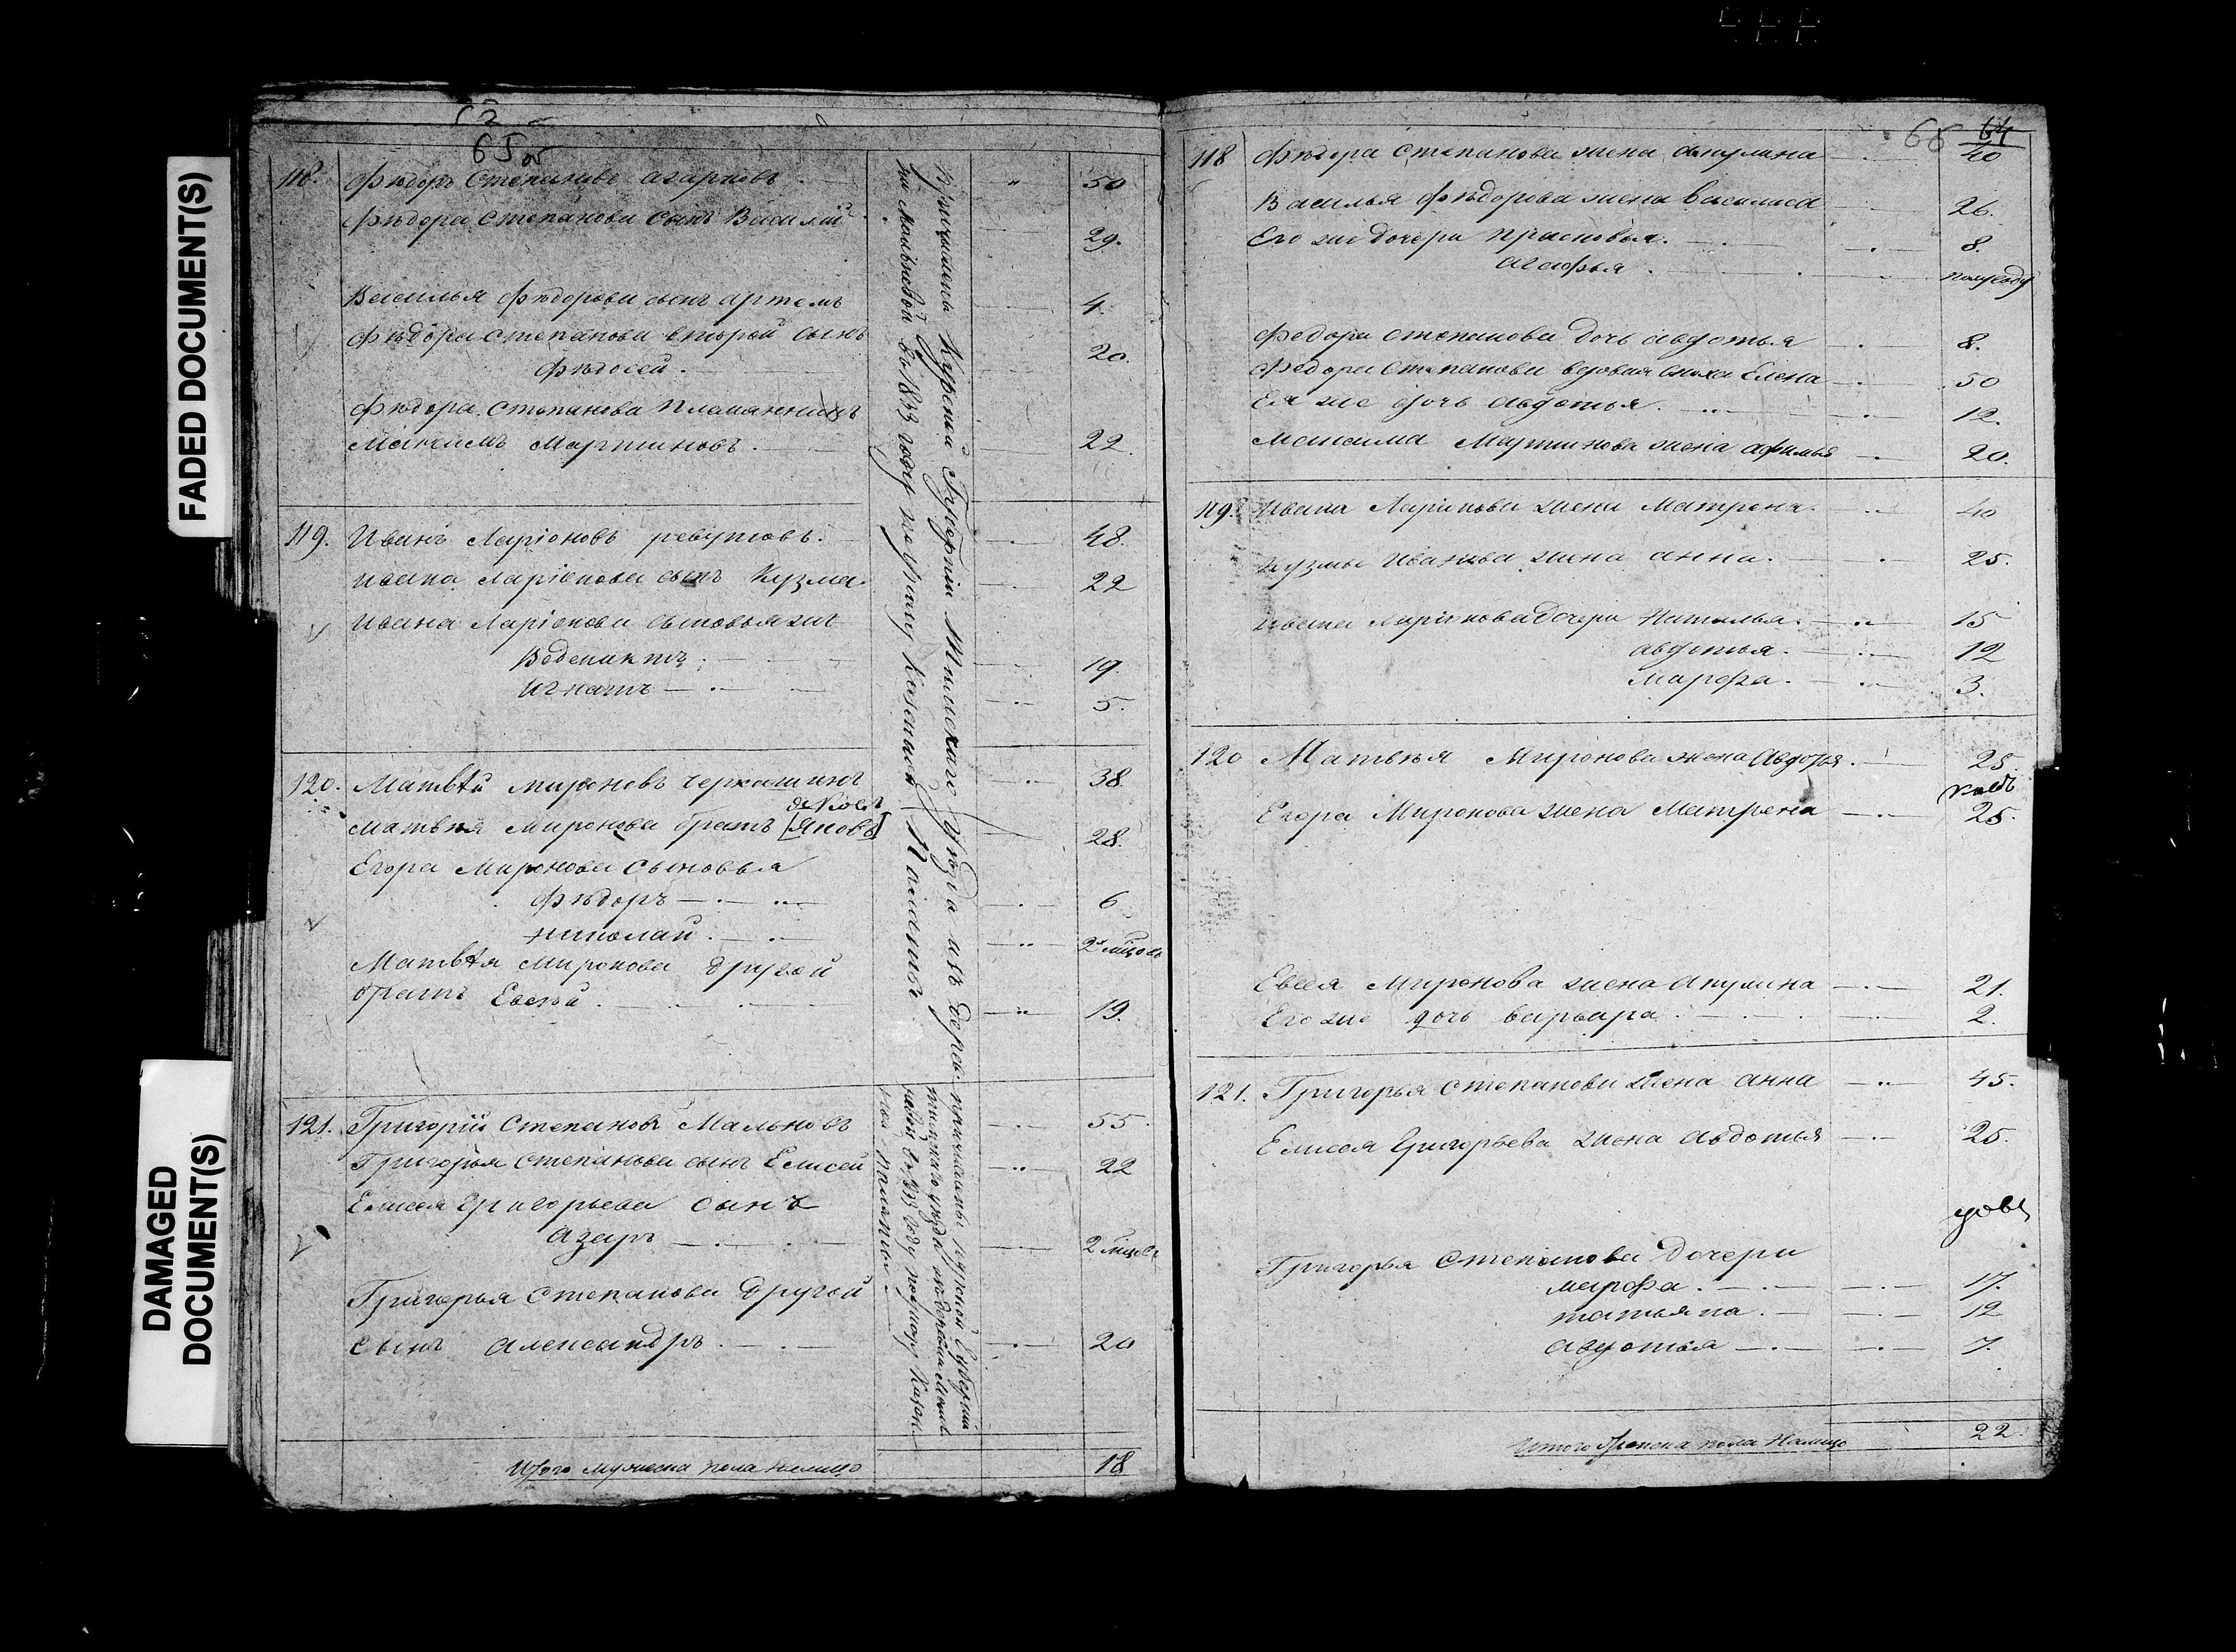 FADED DOCUMENT(S)
DAMAGED
DOCUMENT(S)
65 об
118. Фѣдоръ Степановъ Азарновъ. 50
Фѣдора Степанова сынъ Василій 29.
Василья Фѣдорова сынъ Артемъ 4.
Фѣдора Степанова второй сынъ
Фѣдосей. 20.
Фѣдора Степанова племянникъ
Максимъ Мартиновъ. 22.
119. Иванъ Ларіоновъ Ревутовъ. 48.
Ивана Ларіонова сынъ Кузма. 22
Ивана Ларіонова сыновья же
Ведениктъ 19.
Игнатъ 5.
120. Матвѣй Мироновъ Черкашинъ 38.
Матвѣя Миронова братъ [Яновъ] 28.
Егора Миронова сыновья
Фѣдоръ 6
Николай. 2 мѣцовъ
Матвѣя Миронова другой
братъ Евсѣй. 19.
121. Григорій Степановъ Мальновъ 55.
Григорья Степанова сынъ Елисей 22
Елисея Григорьева сынъ
Азаръ 2 мѣцовъ
Григорья Степанова другой
сынъ Александръ. 20
Итого мужеска пола налицо 18
Причислены Курской Губерніи Тимскаго Уѣзда изъ дерев-
въ 1833 году по Указу Казенной Палаты.
причислены Курской Губерніи
въ 1833 году по Указу Казен-
ной Палаты
66 64
118 Фѣдора Степанова жена Акулина 40
Василья Фѣдорова жена Василиса 26.
Его же дочери Прасковья. 8.
Агафья. полугоду
Федора Степанова дочь Авдотья 8.
Федора Степанова вдовая сноха Елена 50
Ея же дочь Авдотья. 12.
Максима Мартинова жена Афимья 20.
119. Ивана Ларіонова жена Матрена. 40
Кузмы Иванова жена Анна. 25.
Ивана Ларіонова дочери Наталья. 15
Авдотья. 12
Марфа. 3.
120 Матвѣя Миронова жена Авдотья. 25.
Егора Миронова жена Матрена 25.
Евсея Миронова жена Акулина 21.
Его же дочь Варвара. 2.
121. Григорья Степанова жена Анна 45.
Елисея Григорьева жена Авдотья 25.
Григорья Степанова дочери
Марфа. 17.
Татьяна. 12
Авдотья 7.
Итого Женска пола налицо 22.